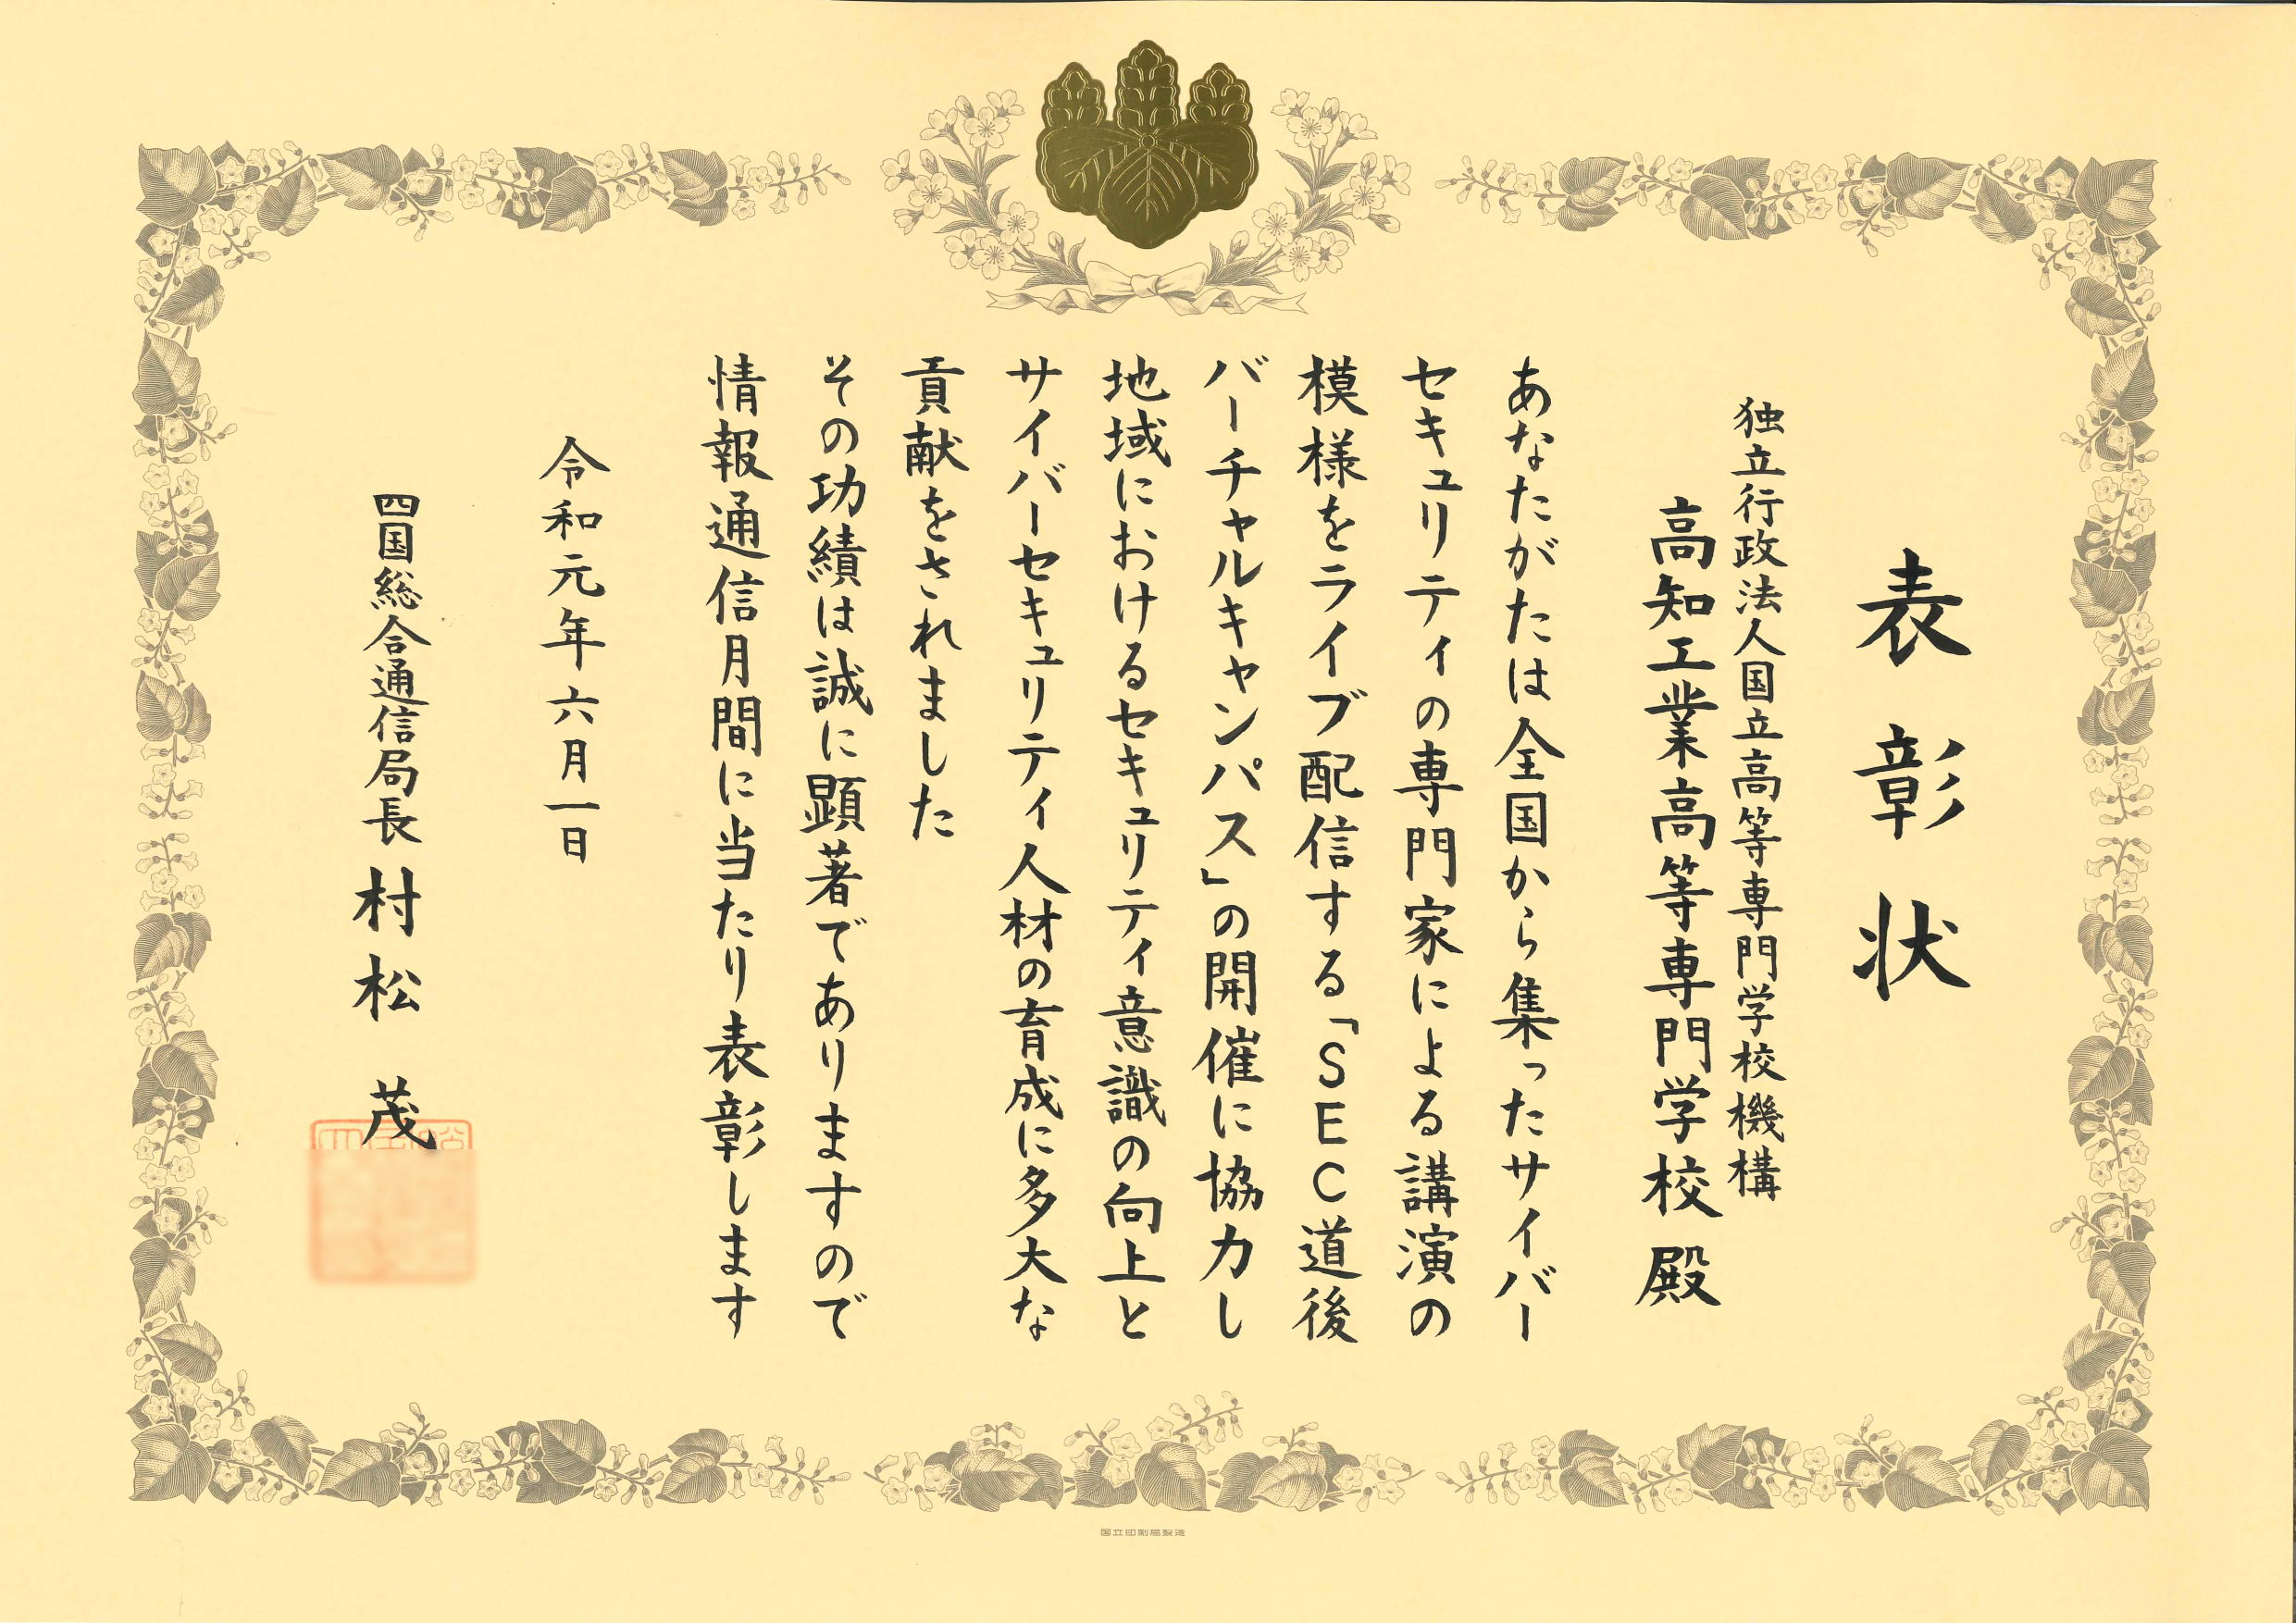 表彰状
独立行政法人国立高等専門学校機構
高知工業高等専門学校 殿
あなたがたは全国から集ったサイバー
セキュリティの専門家による講演の
模様をライブ配信する「SEC道後
バーチャルキャンパス」の開催に協力し
地域におけるセキュリティ意識の向上と
サイバーセキュリティ人材の育成に多大な
貢献をされました
その功績は誠に顕著でありますので
情報通信月間に当たり表彰します
令和元年六月一日
四国総合通信局長 村松 茂
国立印刷局製造